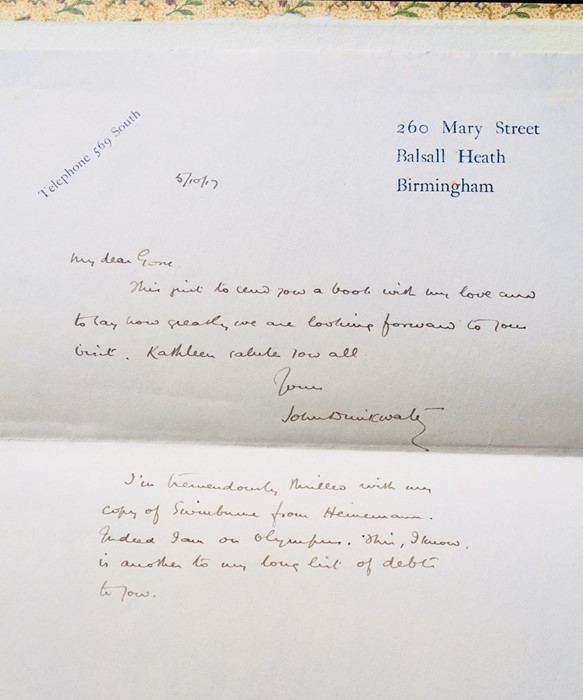 Telephone 569 South
260 Mary Street
Balsall Heath
Birmingham
5/10/17
My dear Gosse
This just to send you a book with my love and
to say how greatly we are looking forward to your
visit. Kathleen salutes you all
Yours
John Drinkwater
I'm tremendously thrilled with my
copy of Swinburne from Heinemann.
Indeed I am on Olympus. This, I know,
is another to my long list of debts
to you.